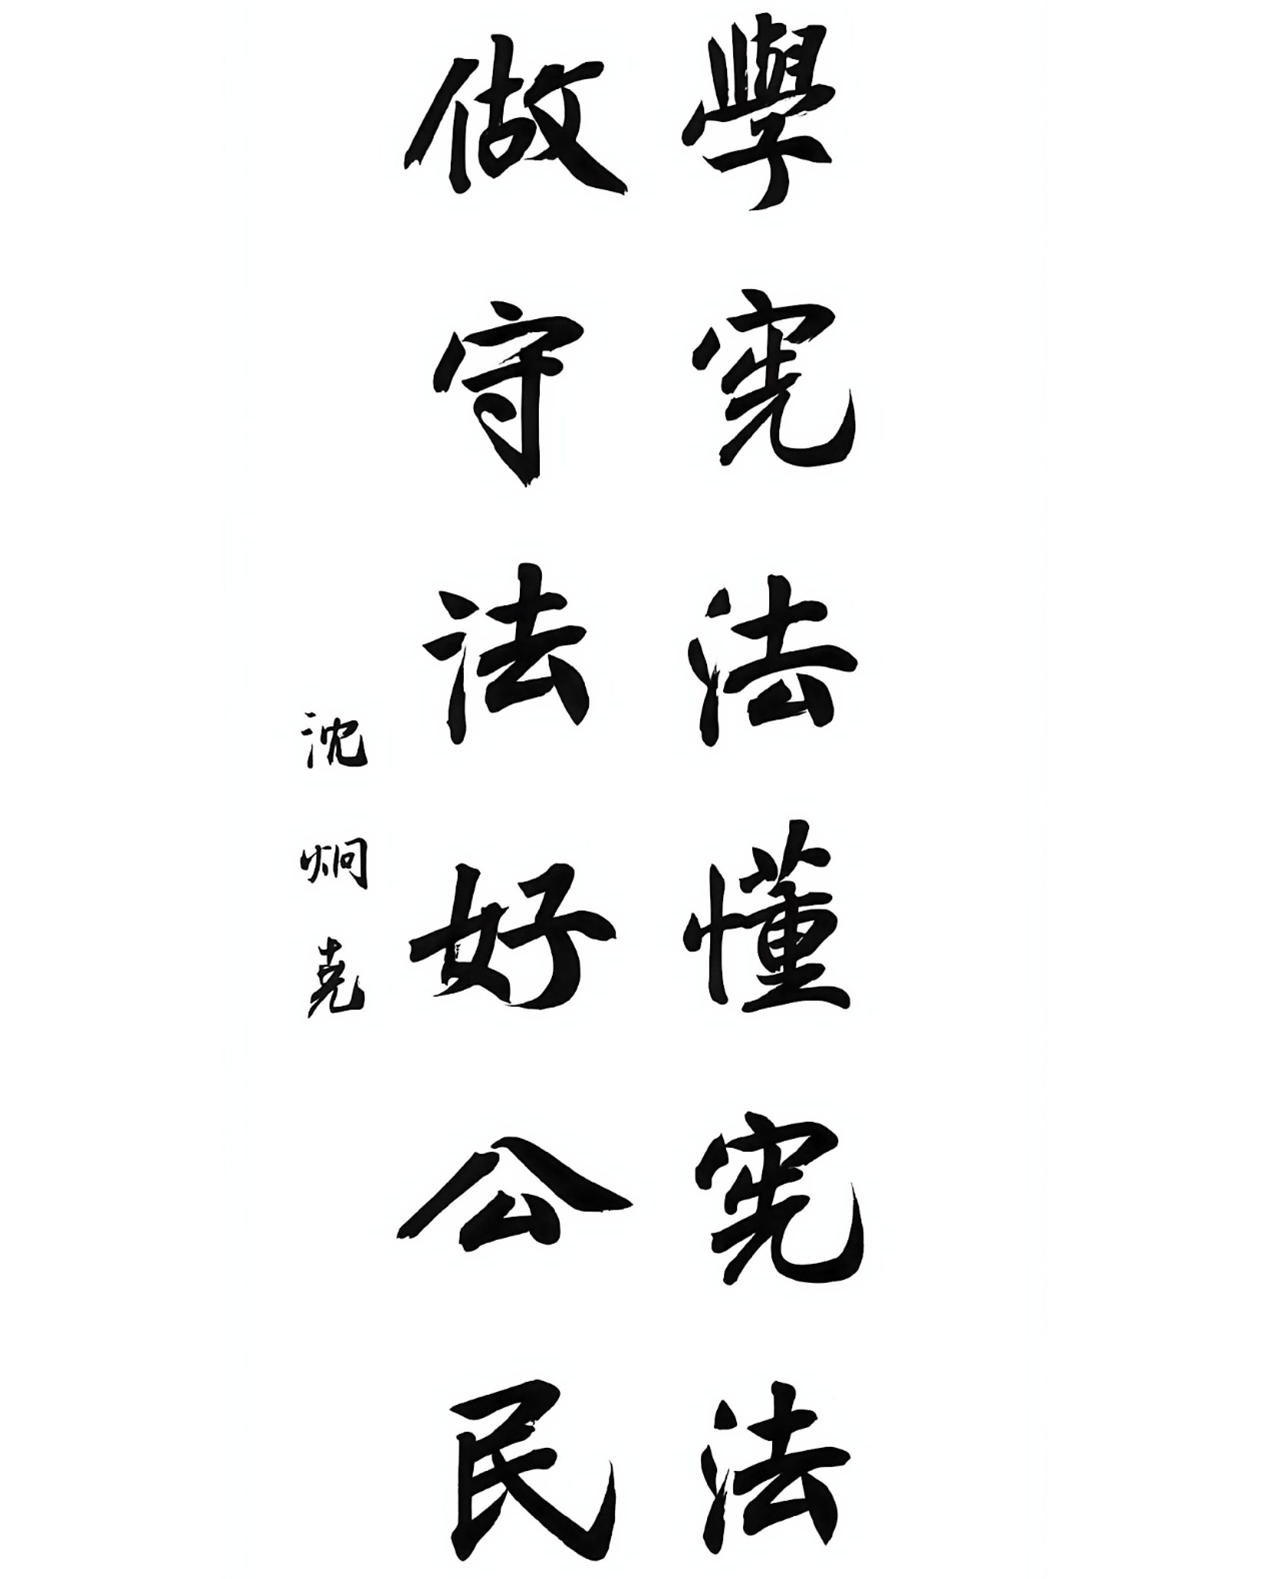 學宪法懂宪法
做守法好公民
沈炯克